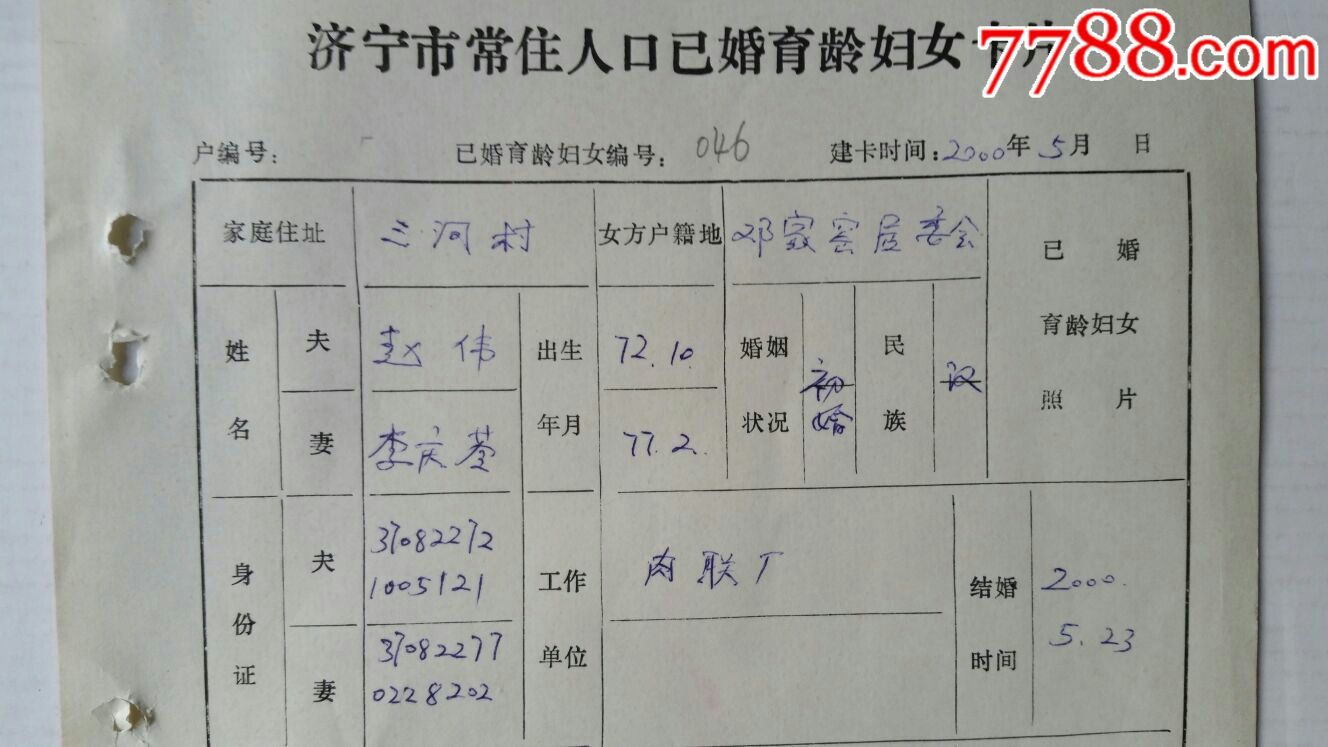 济宁市常住人口已婚育龄妇女卡片
7788.com
户编号： 已婚育龄妇女编号： 046 建卡时间：2000年5月 日
家庭住址 三河村 女方户籍地 邓家窑居委会
已婚
育龄妇女
照片
姓名 夫 赵伟 出生年月 72.10. 婚姻状况 初婚 民族 汉
妻 李庆荃 77.2.
身份证 夫 37082272
1005121
工作单位 肉联厂 结婚时间 2000.
5.23
妻 37082277
0228202